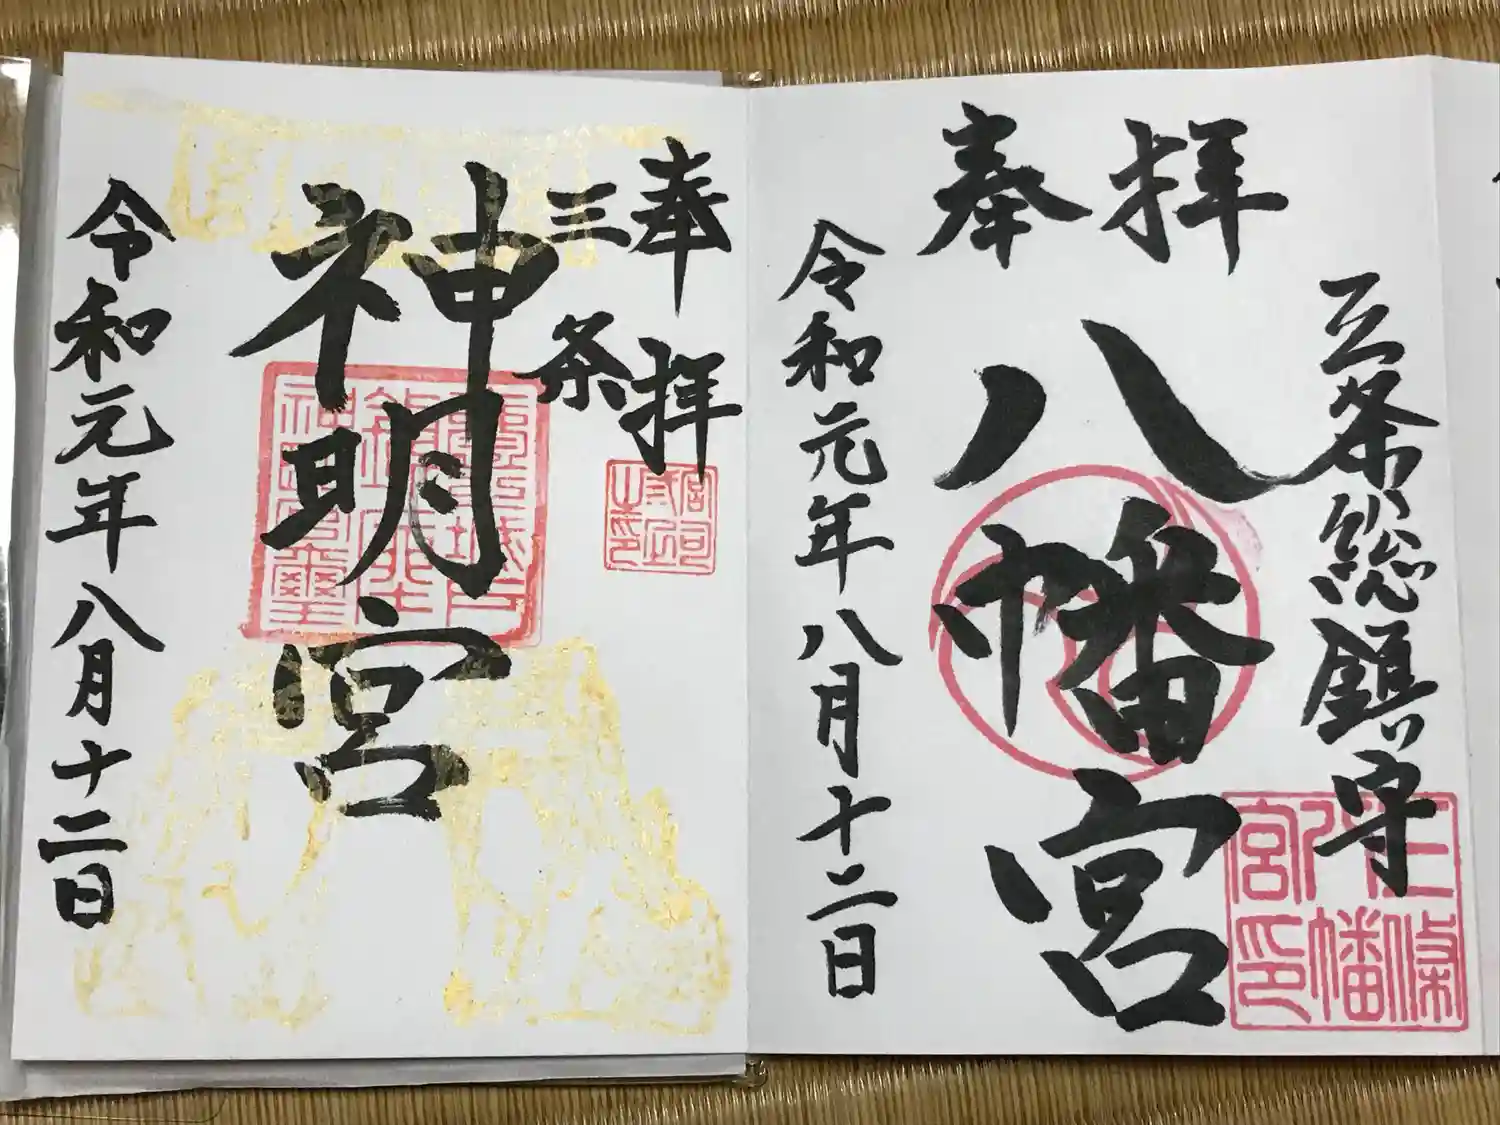 奉拝
三条総鎮守
八幡宮
三條八幡宮印
令和元年八月十二日
奉拝
三条
神明宮
令和元年八月十二日